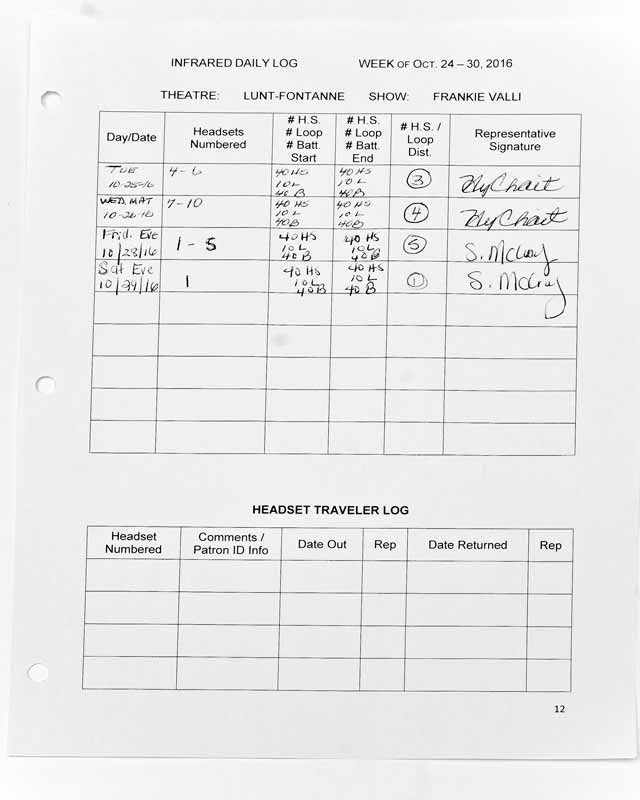 INFRARED DAILY LOG WEEK OF OCT. 24 – 30, 2016
THEATRE: LUNT-FONTANNE SHOW: FRANKIE VALLI
Day/Date Headsets Numbered # H.S. # Loop # Batt. Start # H.S. # Loop # Batt. End # H.S. / Loop Dist. Representative Signature
TUE 10-25-16 4-6 40 HS 10 L 40 B 40 HS 10 L 40B 3
WED. MAT 10-26-16 7-10 40 HS 10 L 40B 40 HS 10 L 40B 4
Frid. Eve 10/28/16 1-5 40 HS 10 L 40 B 40 HS 10 L 40 B 5 S. McCray
Sat Eve 10/29/16 1 40 Hs 10 L 40 B 40 HS 10 L 40 B 1 S. McCray
HEADSET TRAVELER LOG
Headset Numbered Comments / Patron ID Info Date Out Rep Date Returned Rep
12